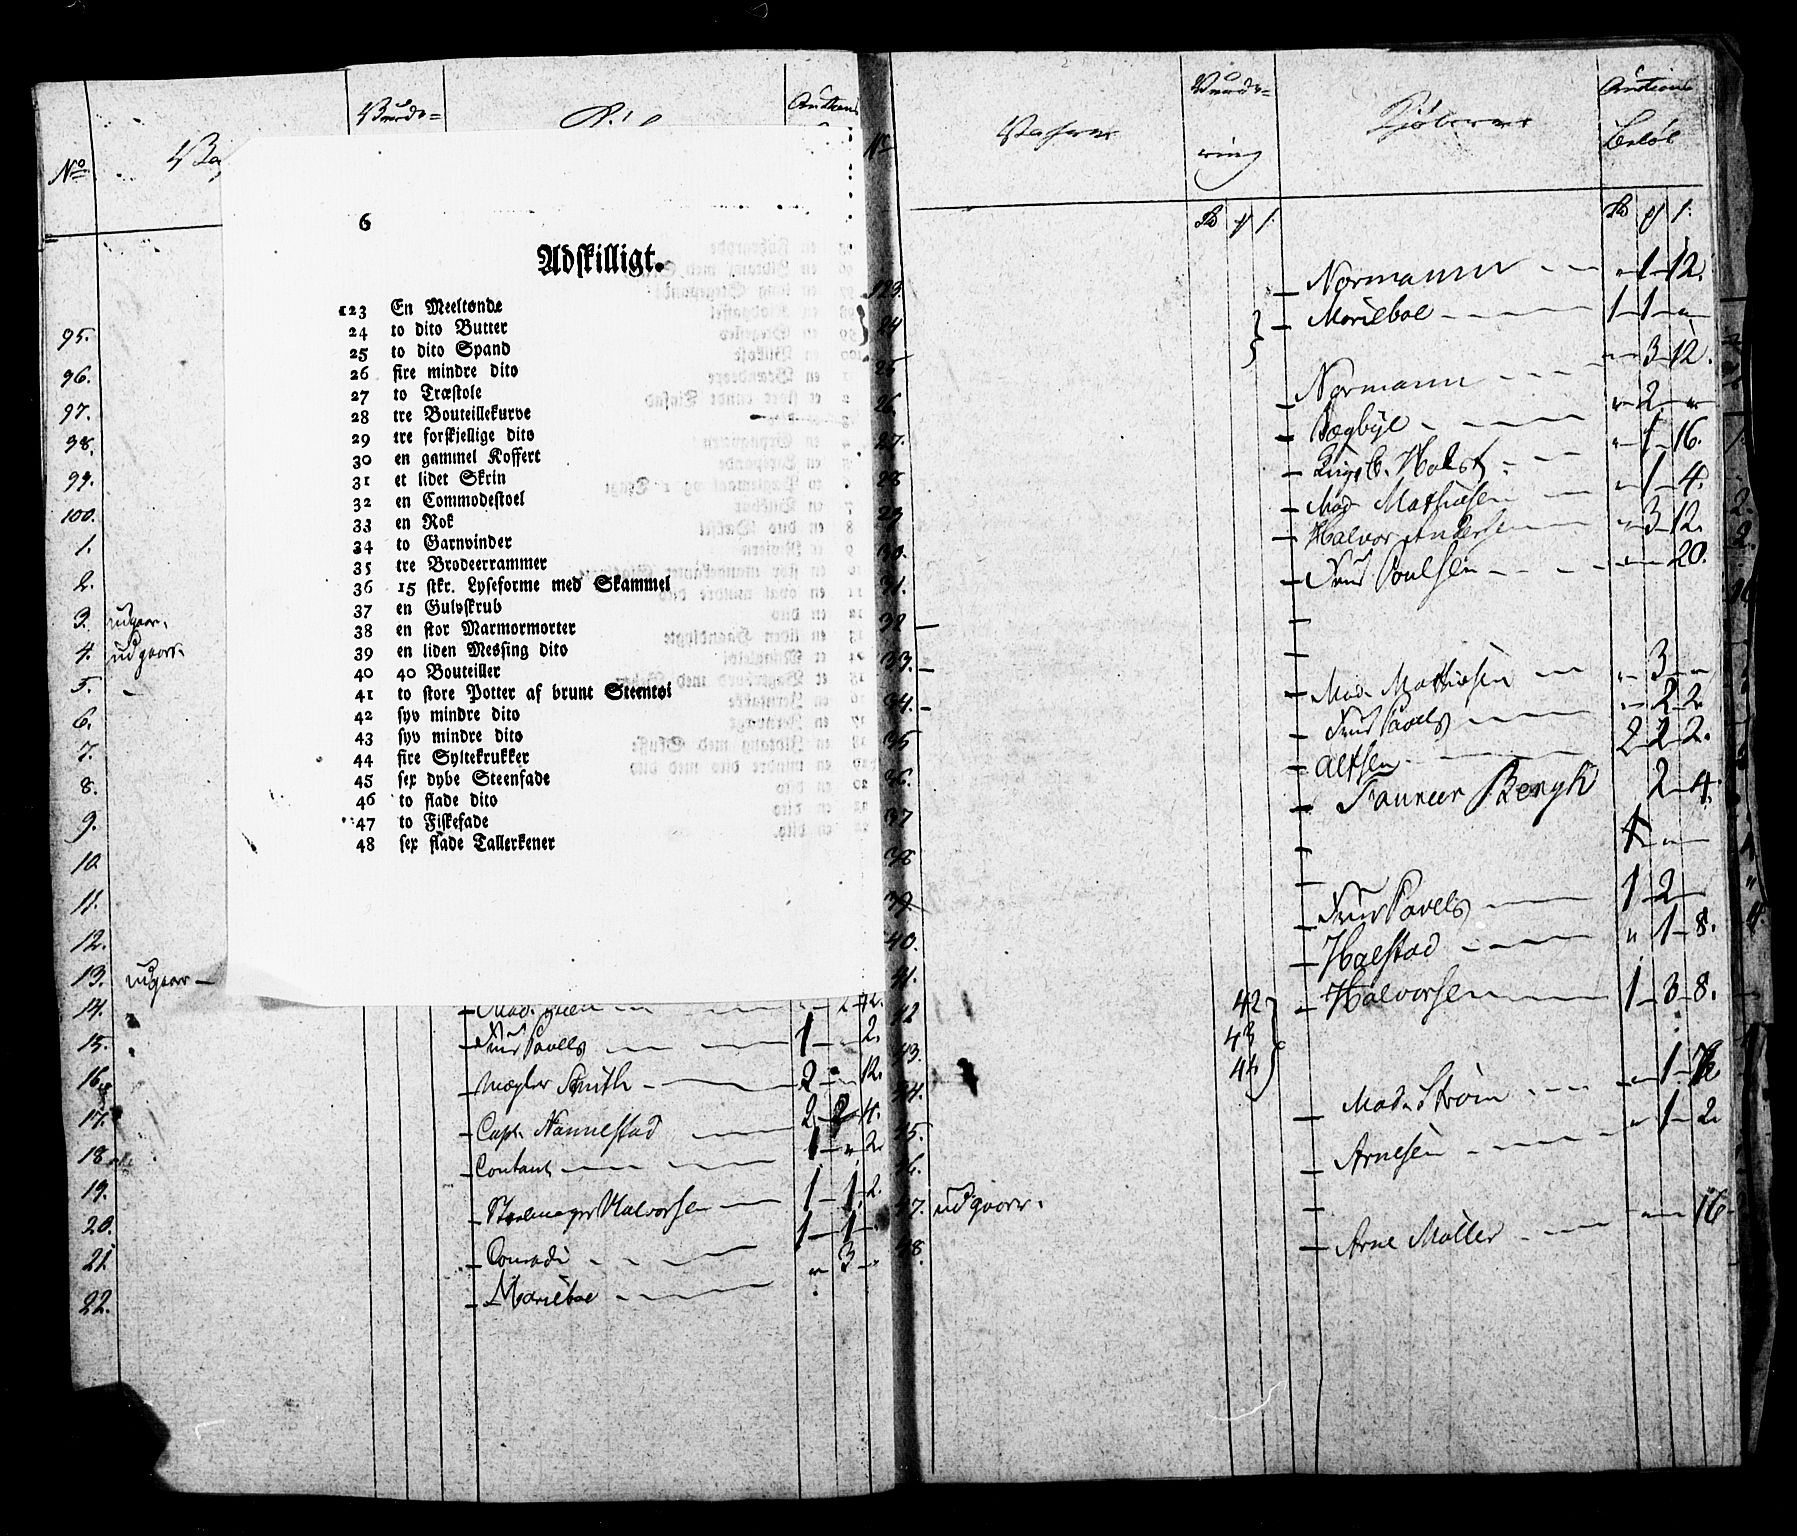 No
Vurde=
Auctions
95.
96.
97.
98.
99.
100.
1.
2.
3. udgaar.
4. udgaar.
5. –
6.
7.
8.
9.
10.
11.
12.
13. udgaar –
14. 2 12.
15. Frue Pavels 1 – 2.
16. Mægler Smith 2 – 12.
17. Capt. Nannestad 2 2 4.
18. Contant 1 " 2
19. Halvorsen 1 1 2.
20. Conradi 1 – 1 –
21. Mariboe " 3 –
22.
6
Adskilligt.
123 En Meeltønde
24 to dito Butter
25 to dito Spand
26 fire mindre dito
27 to Træstole
28 tre Bouteillekurve
29 tre forskjellige dito
30 en gammel Koffert
31 et lidet Skrin
32 en Commodestoel
33 en Rok
34 to Garnvinder
35 tre Broderrammer
36 15 stkr. Lyseforme med Skammel
37 en Gulvskrub
38 en stor Marmormorter
39 en liden Messing dito
40 40 Bouteiller
41 to store Potter af brunt Steentøi
42 syv mindre dito
43 syv mindre dito
44 fire Syltekrukker
45 sex dybe Steenfade
46 to flade dito
47 to Fiskefade
48 sex flade Tallerkener
No Vahrene Vurde=ring Kjøberne Auctions Beløb
123. Normann " 1 12.
24 Mariboe 1 1 "
25 " 3 12.
26. Normann " 2 "
27. Bøgbye " 1 16.
28 Holst " 1 4.
29 Mad. Mathiesen " 3 12.
30. Halvor Andersen " " 20.
31. Frue Poulsen
32 –
33. –
34. – Mad. Mathiesen " 3 "
35 Frue Pavels " 2 2.
36. Alfsen 2 2 2.
37 Tanneur Bergh 2 4.
38 4 " "
39.
40. Frue Pavels 1 2 –
41. Halstad " 1 8.
42 Halvorsen 1 3 8.
43.
44.
42
43
44
45. Mad. Strøm " 1 12
46. Arnesen " 1 2
47. udgaar.
48. Arne Møller " " 16